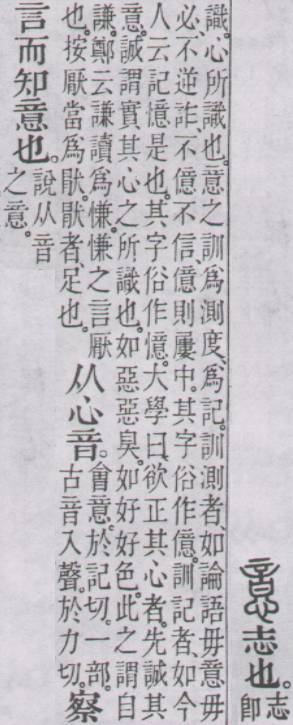 意志也。
志
即
識。心所識也。意之訓為測度、為記。訓測者如論語毋意毋
必、不逆詐、不億不信、億則屢中。其字俗作億。訓記者、如今
人云記憶是也。其字俗作憶。大學曰、欲正其心者、先誠其
意。誠謂實其心之所識也。如惡惡臭。如好好色。此之謂自
謙。鄭云謙讀為慊。慊之言厭
也。按厭當為猒。猒者、足也。
从心音。
會意。於記切。一部。
古音入聲。於力切。
察
言而知意也。
說从音
之意。